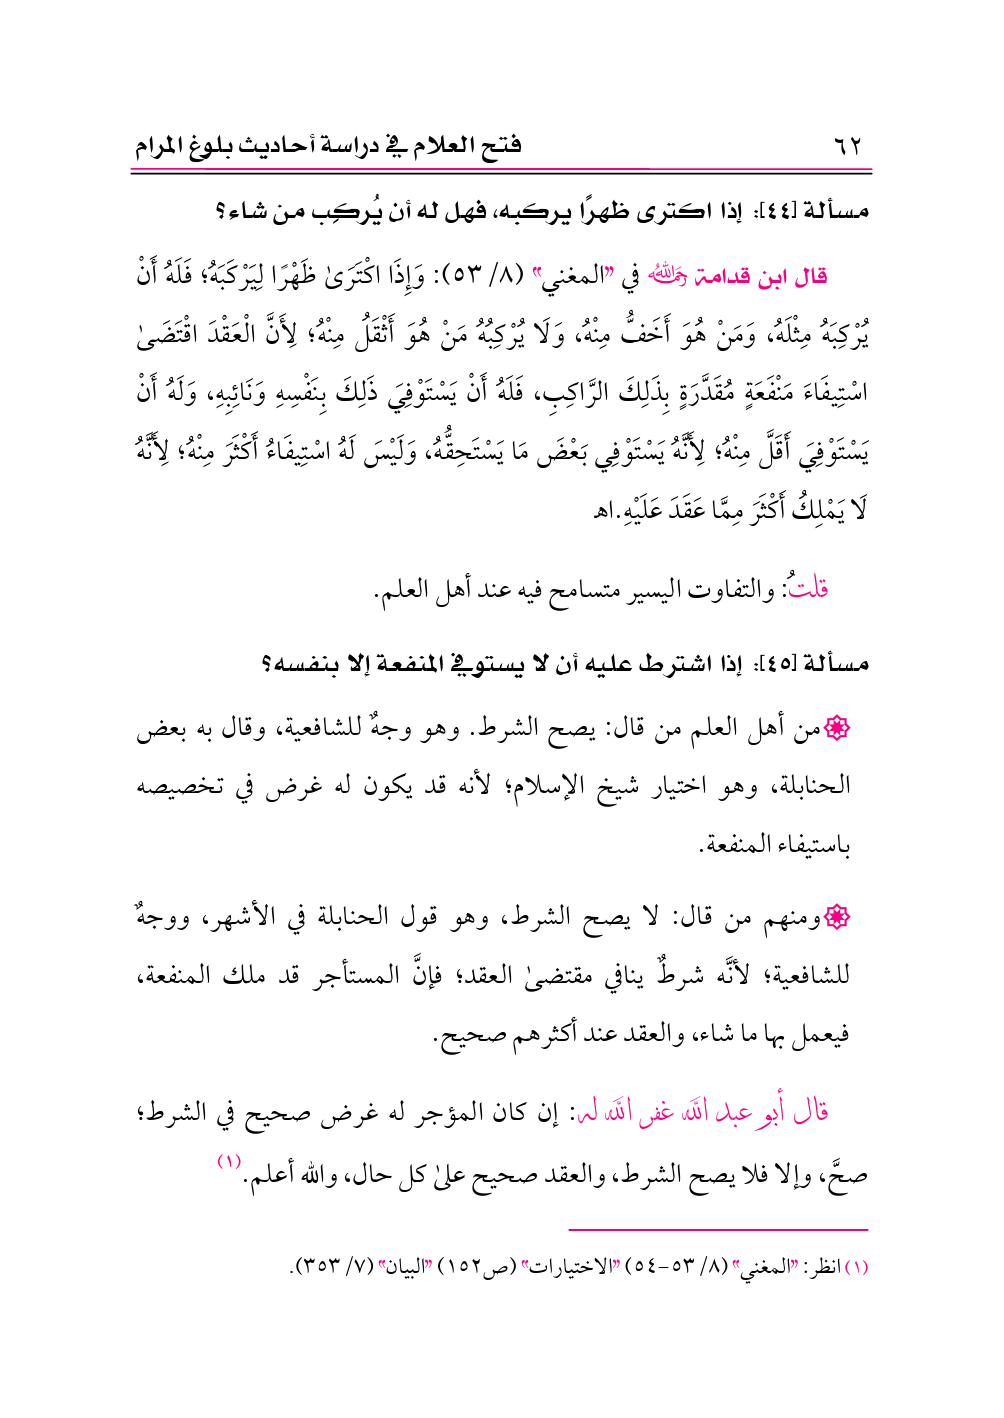 ٦٢ فتح العلام في دراسة أحاديث بلوغ المرام
مسألة [٤٤]: إذا اكترى ظهرًا يركبه، فهل له أن يُركِب من شاء؟
قال ابن قدامة رحمه الله في "المغني" (٨/ ٥٣): وَإِذَا اكْتَرَىٰ ظَهْرًا لِيَرْكَبَهُ؛ فَلَهُ أَنْ
يُرْكِبَهُ مِثْلَهُ، وَمَنْ هُوَ أَخَفُّ مِنْهُ، وَلَا يُرْكِبُهُ مَنْ هُوَ أَثْقَلُ مِنْهُ؛ لِأَنَّ الْعَقْدَ اقْتَضَىٰ
اسْتِيفَاءَ مَنْفَعَةٍ مُقَدَّرَةٍ بِذَلِكَ الرَّاكِبِ، فَلَهُ أَنْ يَسْتَوْفِيَ ذَلِكَ بِنَفْسِهِ وَنَائِبِهِ، وَلَهُ أَنْ
يَسْتَوْفِيَ أَقَلَّ مِنْهُ؛ لِأَنَّهُ يَسْتَوْفِي بَعْضَ مَا يَسْتَحِقُّهُ، وَلَيْسَ لَهُ اسْتِيفَاءُ أَكْثَرَ مِنْهُ؛ لِأَنَّهُ
لَا يَمْلِكُ أَكْثَرَ مِمَّا عَقَدَ عَلَيْهِ.اهـ
قلتُ: والتفاوت اليسير متسامح فيه عند أهل العلم.
مسألة [٤٥]: إذا اشترط عليه أن لا يستوفي المنفعة إلا بنفسه؟
من أهل العلم من قال: يصح الشرط. وهو وجهٌ للشافعية، وقال به بعض
الحنابلة، وهو اختيار شيخ الإسلام؛ لأنه قد يكون له غرض في تخصيصه
باستيفاء المنفعة.
ومنهم من قال: لا يصح الشرط، وهو قول الحنابلة في الأشهر، ووجهٌ
للشافعية؛ لأنَّه شرطٌ ينافي مقتضىٰ العقد؛ فإنَّ المستأجر قد ملك المنفعة،
فيعمل بها ما شاء، والعقد عند أكثرهم صحيح.
قال أبو عبد الله غفر الله له: إن كان المؤجر له غرض صحيح في الشرط؛
صحَّ، وإلا فلا يصح الشرط، والعقد صحيح علىٰ كل حال، والله أعلم.(١)
(١) انظر: "المغني" (٨/ ٥٣-٥٤) "الاختيارات" (ص١٥٢) "البيان" (٧/ ٣٥٣).